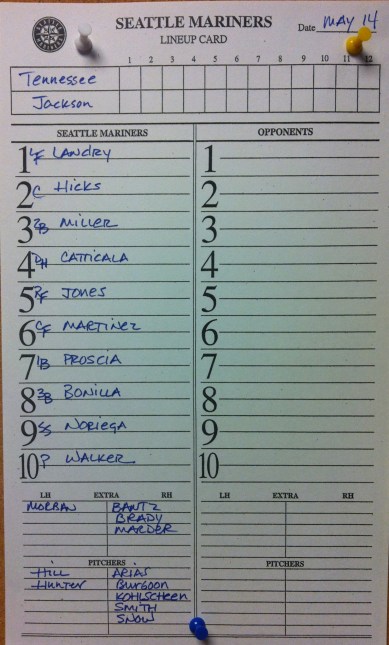 SEATTLE MARINERS
LINEUP CARD
Date MAY 14
1 2 3 4 5 6 7 8 9 10 11 12
Tennessee
Jackson
SEATTLE MARINERS OPPONENTS
1 LF LANDRY 1
2 C Hicks 2
3 2B MILLER 3
4 DH CATRICALA 4
5 RF JONES 5
6 CF MARTINEZ 6
7 1B PROSCIA 7
8 3B BONILLA 8
9 SS NORIEGA 9
10 P WALKER 10
LH EXTRA RH LH EXTRA RH
MORBAN BANTZ
BRADY
MARDER
PITCHERS PITCHERS
Hill ARIAS
Hunter Burgoon
KOHLSCHEEN
SMITH
SNOW